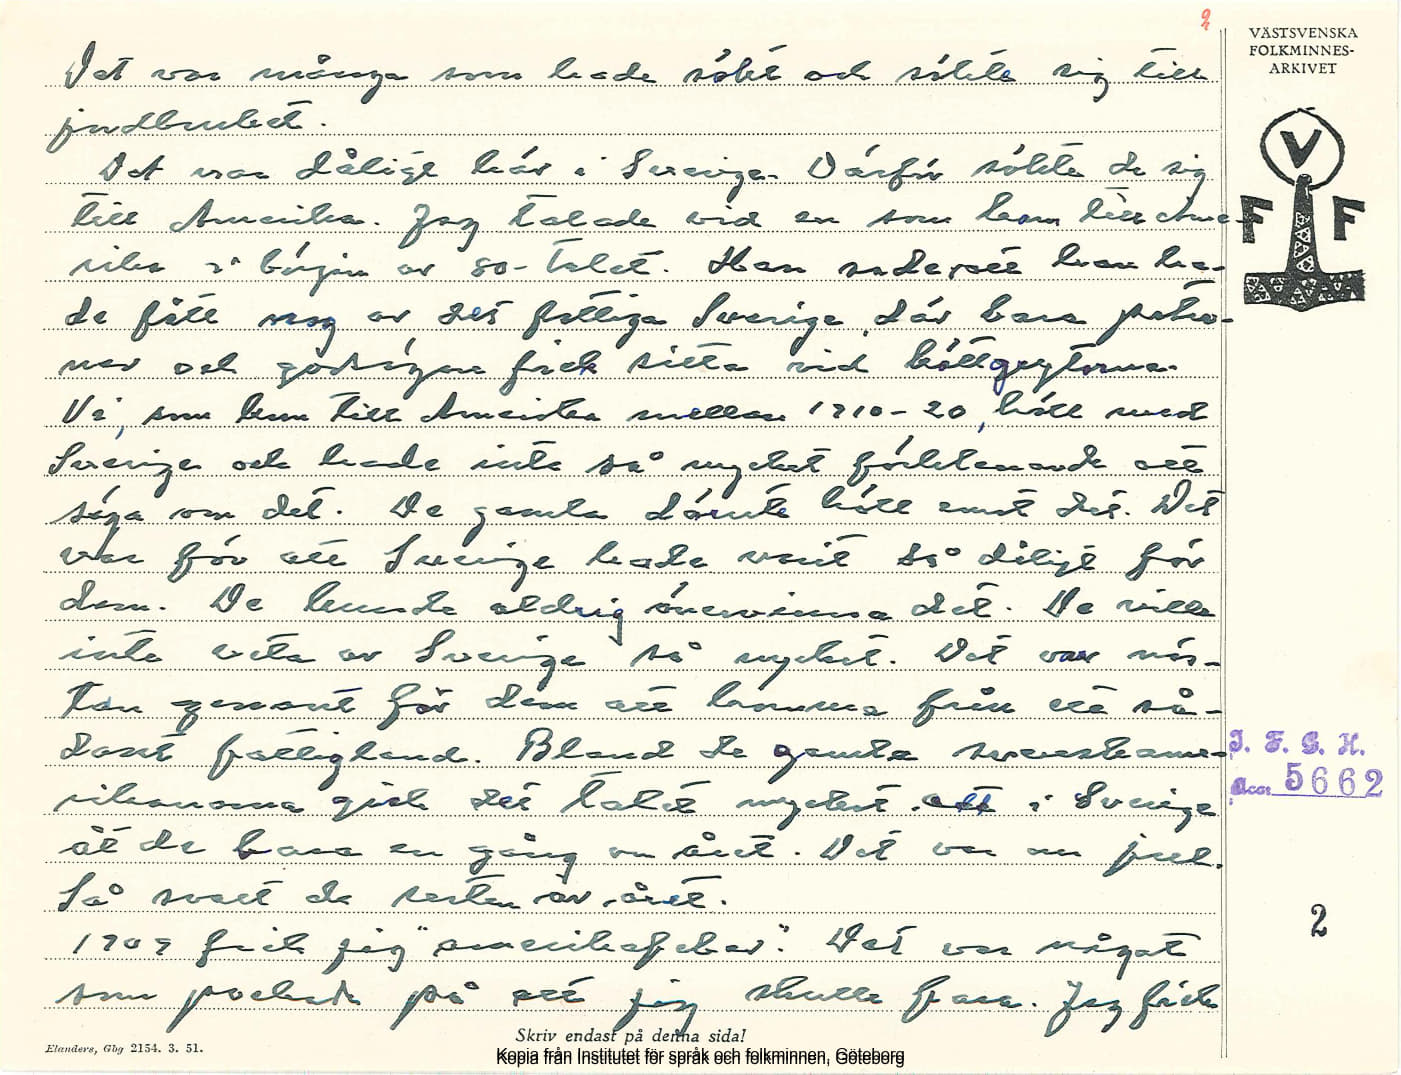 2
VÄSTSVENSKA
FOLKMINNES-
ARKIVET
V
F F
Det var många som hade sökt och sökte sig till
jordbruket.
Det var dåligt här i Sverige. Därför sökte de sig
till Amerika. Jag talade vid en som kom till Ame-
rika i början av 80-talet. Han sade, att han ha-
de fått nog av det fattiga Sverige, där bara patro-
ner och godsägare fick sitta vid köttgrytorna.
Vi, som kom till Amerika mellan 1910-20, höll med
Sverige och hade inte så mycket förklenande att
säga om det. De gamla däremot höll emot det. Det
var för att Sverige hade varit så dåligt för
dem. De kunde aldrig övervinna det. De ville
inte veta av Sverige så mycket. Det var näs-
tan genant för dem att komma från ett så-
dant fattigland. Bland de gamla svenskame-
rikanarna gick det talet mycket att i Sverige
åt de bara en gång om året. Det var om jul.
Så svalt de resten av året.
1909 fick jag "amerikafeber". Det var något
som pockade på att jag skulle fara. Jag fick
I. F. G. H.
Acc. 5662
2
Skriv endast på denna sida!
Elanders, Gbg 2154. 3. 51.
Kopia från Institutet för språk och folkminnen, Göteborg